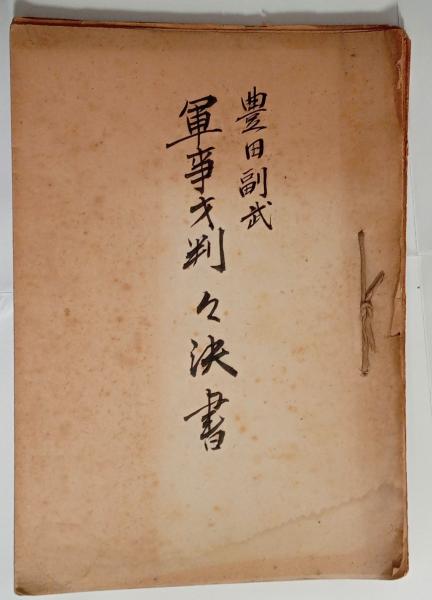 豊田副武
軍事才判々決書